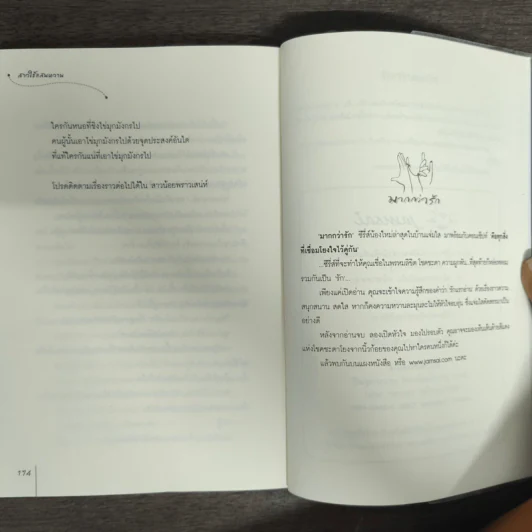 ใครกันหนอที่ชิงไข่มุกมังกรไป
คนผู้นั้นเอาไข่มุกมังกรไปด้วยจุดประสงค์อันใด
ที่แท้ใครกันแน่ที่เอาไข่มุกมังกรไป
โปรดติดตามเรื่องราวต่อไปได้ใน สาวน้อยพราวเสน่ห์
154
มากกว่ารัก
'มากกว่ารัก' ซีรี่ส์น้องใหม่ล่าสุดในบ้านแจ่มใส มาพร้อมกับคอนเซ็ปท์ คือทุกสิ่ง
ที่เชื่อมโยงใจไว้คู่กัน
...ซีรี่ส์ที่จะทำให้คุณเชื่อในพรหมลิขิต โชคชะตา ความผูกพัน
รวมกันเป็น 'รัก'...
เพียงแค่เปิดอ่าน คุณจะเข้าใจความรู้สึกของคำว่า
สนุกสนาน สดใส หากก็คงความหวานละมุนละไมให้หัวใจอบอุ่น
อย่างดี
หลังจากอ่านจบ ลองเปิดหัวใจ มองไปรอบตัว
แห่งโชคชะตาโยงจากนิ้วก้อยของคุณไปหาใครคนหนึ่งก็ได้ค่ะ
แล้วพบกันบนแผงหนังสือ หรือ www.jamsai.com นะคะ